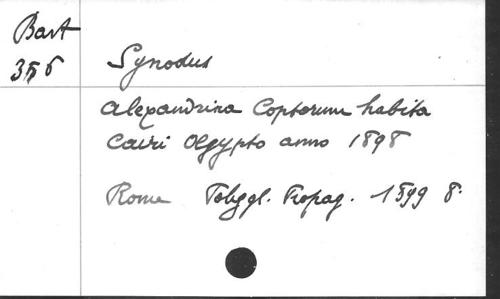 Bart
356
Synodus
Alexandrina Coptorum habita
Cairi Aegypto anno 1898
Rome Polygl. Propag. 1899 8.